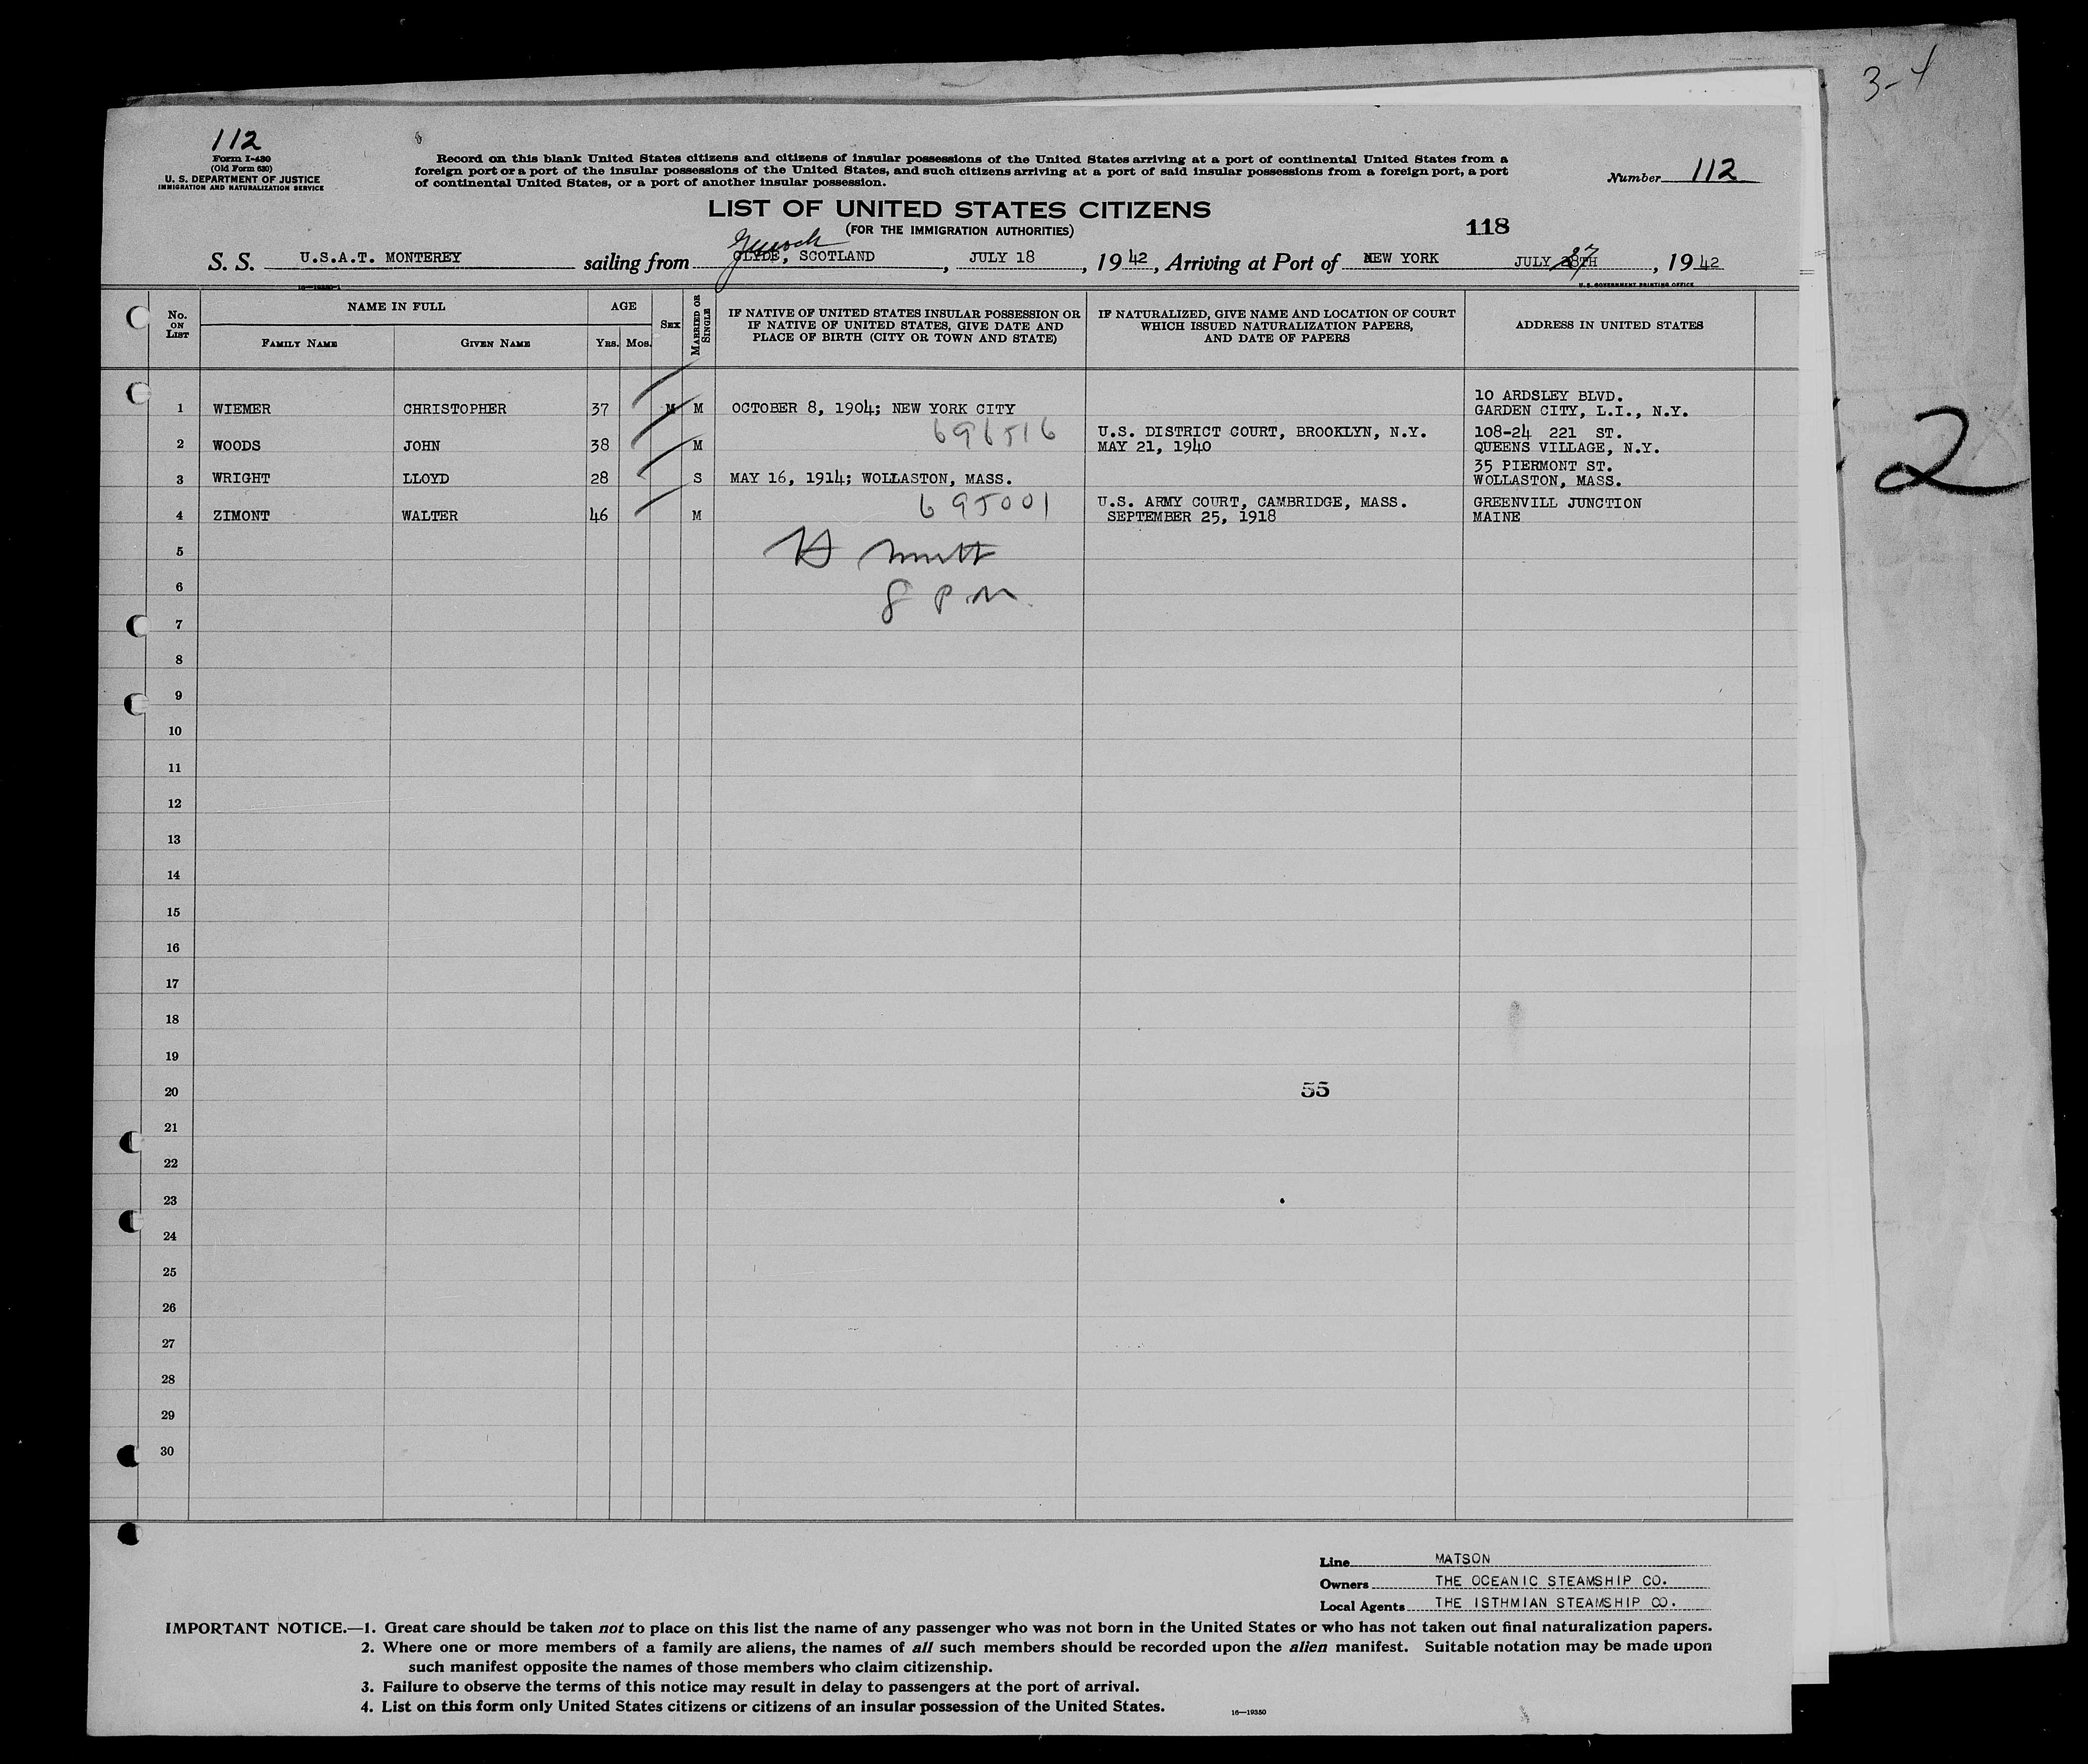 3-4
112
Form I-430
(Old Form 630)
U. S. DEPARTMENT OF JUSTICE
IMMIGRATION AND NATURALIZATION SERVICE
Record on this blank United States citizens and citizens of insular possessions of the United States arriving at a port of continental United States from a
foreign port or a port of the insular possessions of the United States, and such citizens arriving at a port of said insular possessions from a foreign port, a port
of continental United States, or a port of another insular possession.
Number 112
LIST OF UNITED STATES CITIZENS
(FOR THE IMMIGRATION AUTHORITIES)
118
S. S. U.S.A.T. MONTEREY sailing from CLYDE, SCOTLAND, JULY 18, 1942, Arriving at Port of NEW YORK JULY 28TH 27, 1942
U. S. GOVERNMENT PRINTING OFFICE
No. ON LIST NAME IN FULL AGE SEX MARRIED OR SINGLE IF NATIVE OF UNITED STATES INSULAR POSSESSION OR IF NATIVE OF UNITED STATES, GIVE DATE AND PLACE OF BIRTH (CITY OR TOWN AND STATE) IF NATURALIZED, GIVE NAME AND LOCATION OF COURT WHICH ISSUED NATURALIZATION PAPERS, AND DATE OF PAPERS ADDRESS IN UNITED STATES
FAMILY NAME GIVEN NAME YRS. MOS.
1 WIEMER CHRISTOPHER 37 M M OCTOBER 8, 1904; NEW YORK CITY 10 ARDSLEY BLVD.
GARDEN CITY, L.I., N.Y.
2 WOODS JOHN 38 M 696516 U.S. DISTRICT COURT, BROOKLYN, N.Y. 108-24 221 ST.
MAY 21, 1940 QUEENS VILLAGE, N.Y.
3 WRIGHT LLOYD 28 S MAY 16, 1914; WOLLASTON, MASS. 35 PIERMONT ST.
WOLLASTON, MASS.
4 ZIMONT WALTER 46 M 695001 U.S. ARMY COURT, CAMBRIDGE, MASS. GREENVILL JUNCTION
SEPTEMBER 25, 1918 MAINE
5
6 8 PM
7
8
9
10
11
12
13
14
15
16
17
18
19
20 55
21
22
23
24
25
26
27
28
29
30
2
Line MATSON
Owners THE OCEANIC STEAMSHIP CO.
Local Agents THE ISTHMIAN STEAMSHIP CO.
IMPORTANT NOTICE.—1. Great care should be taken not to place on this list the name of any passenger who was not born in the United States or who has not taken out final naturalization papers.
2. Where one or more members of a family are aliens, the names of all such members should be recorded upon the alien manifest. Suitable notation may be made upon
such manifest opposite the names of those members who claim citizenship.
3. Failure to observe the terms of this notice may result in delay to passengers at the port of arrival.
4. List on this form only United States citizens or citizens of an insular possession of the United States.
16—19350